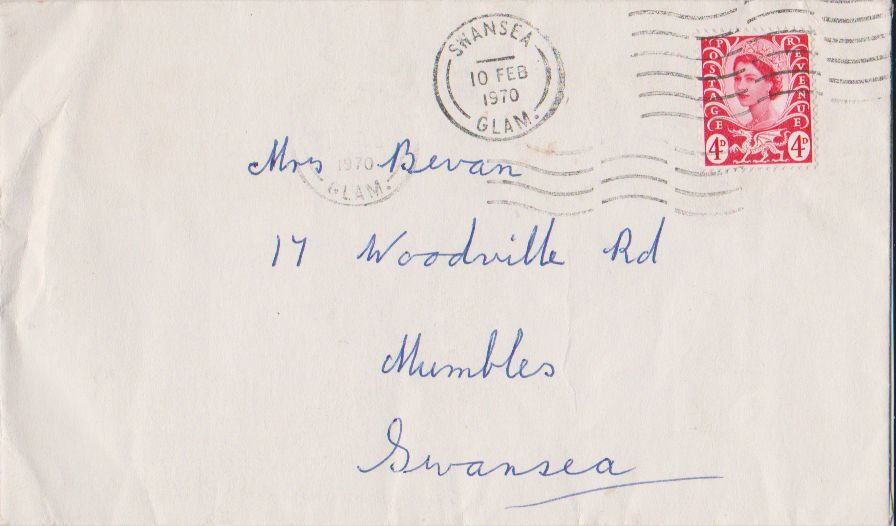 SWANSEA
10 FEB
1970
GLAM.
POSTAGE
REVENUE
4D
4D
1970
GLAM.
Mrs Bevan
17 Woodville Rd
Mumbles
Swansea